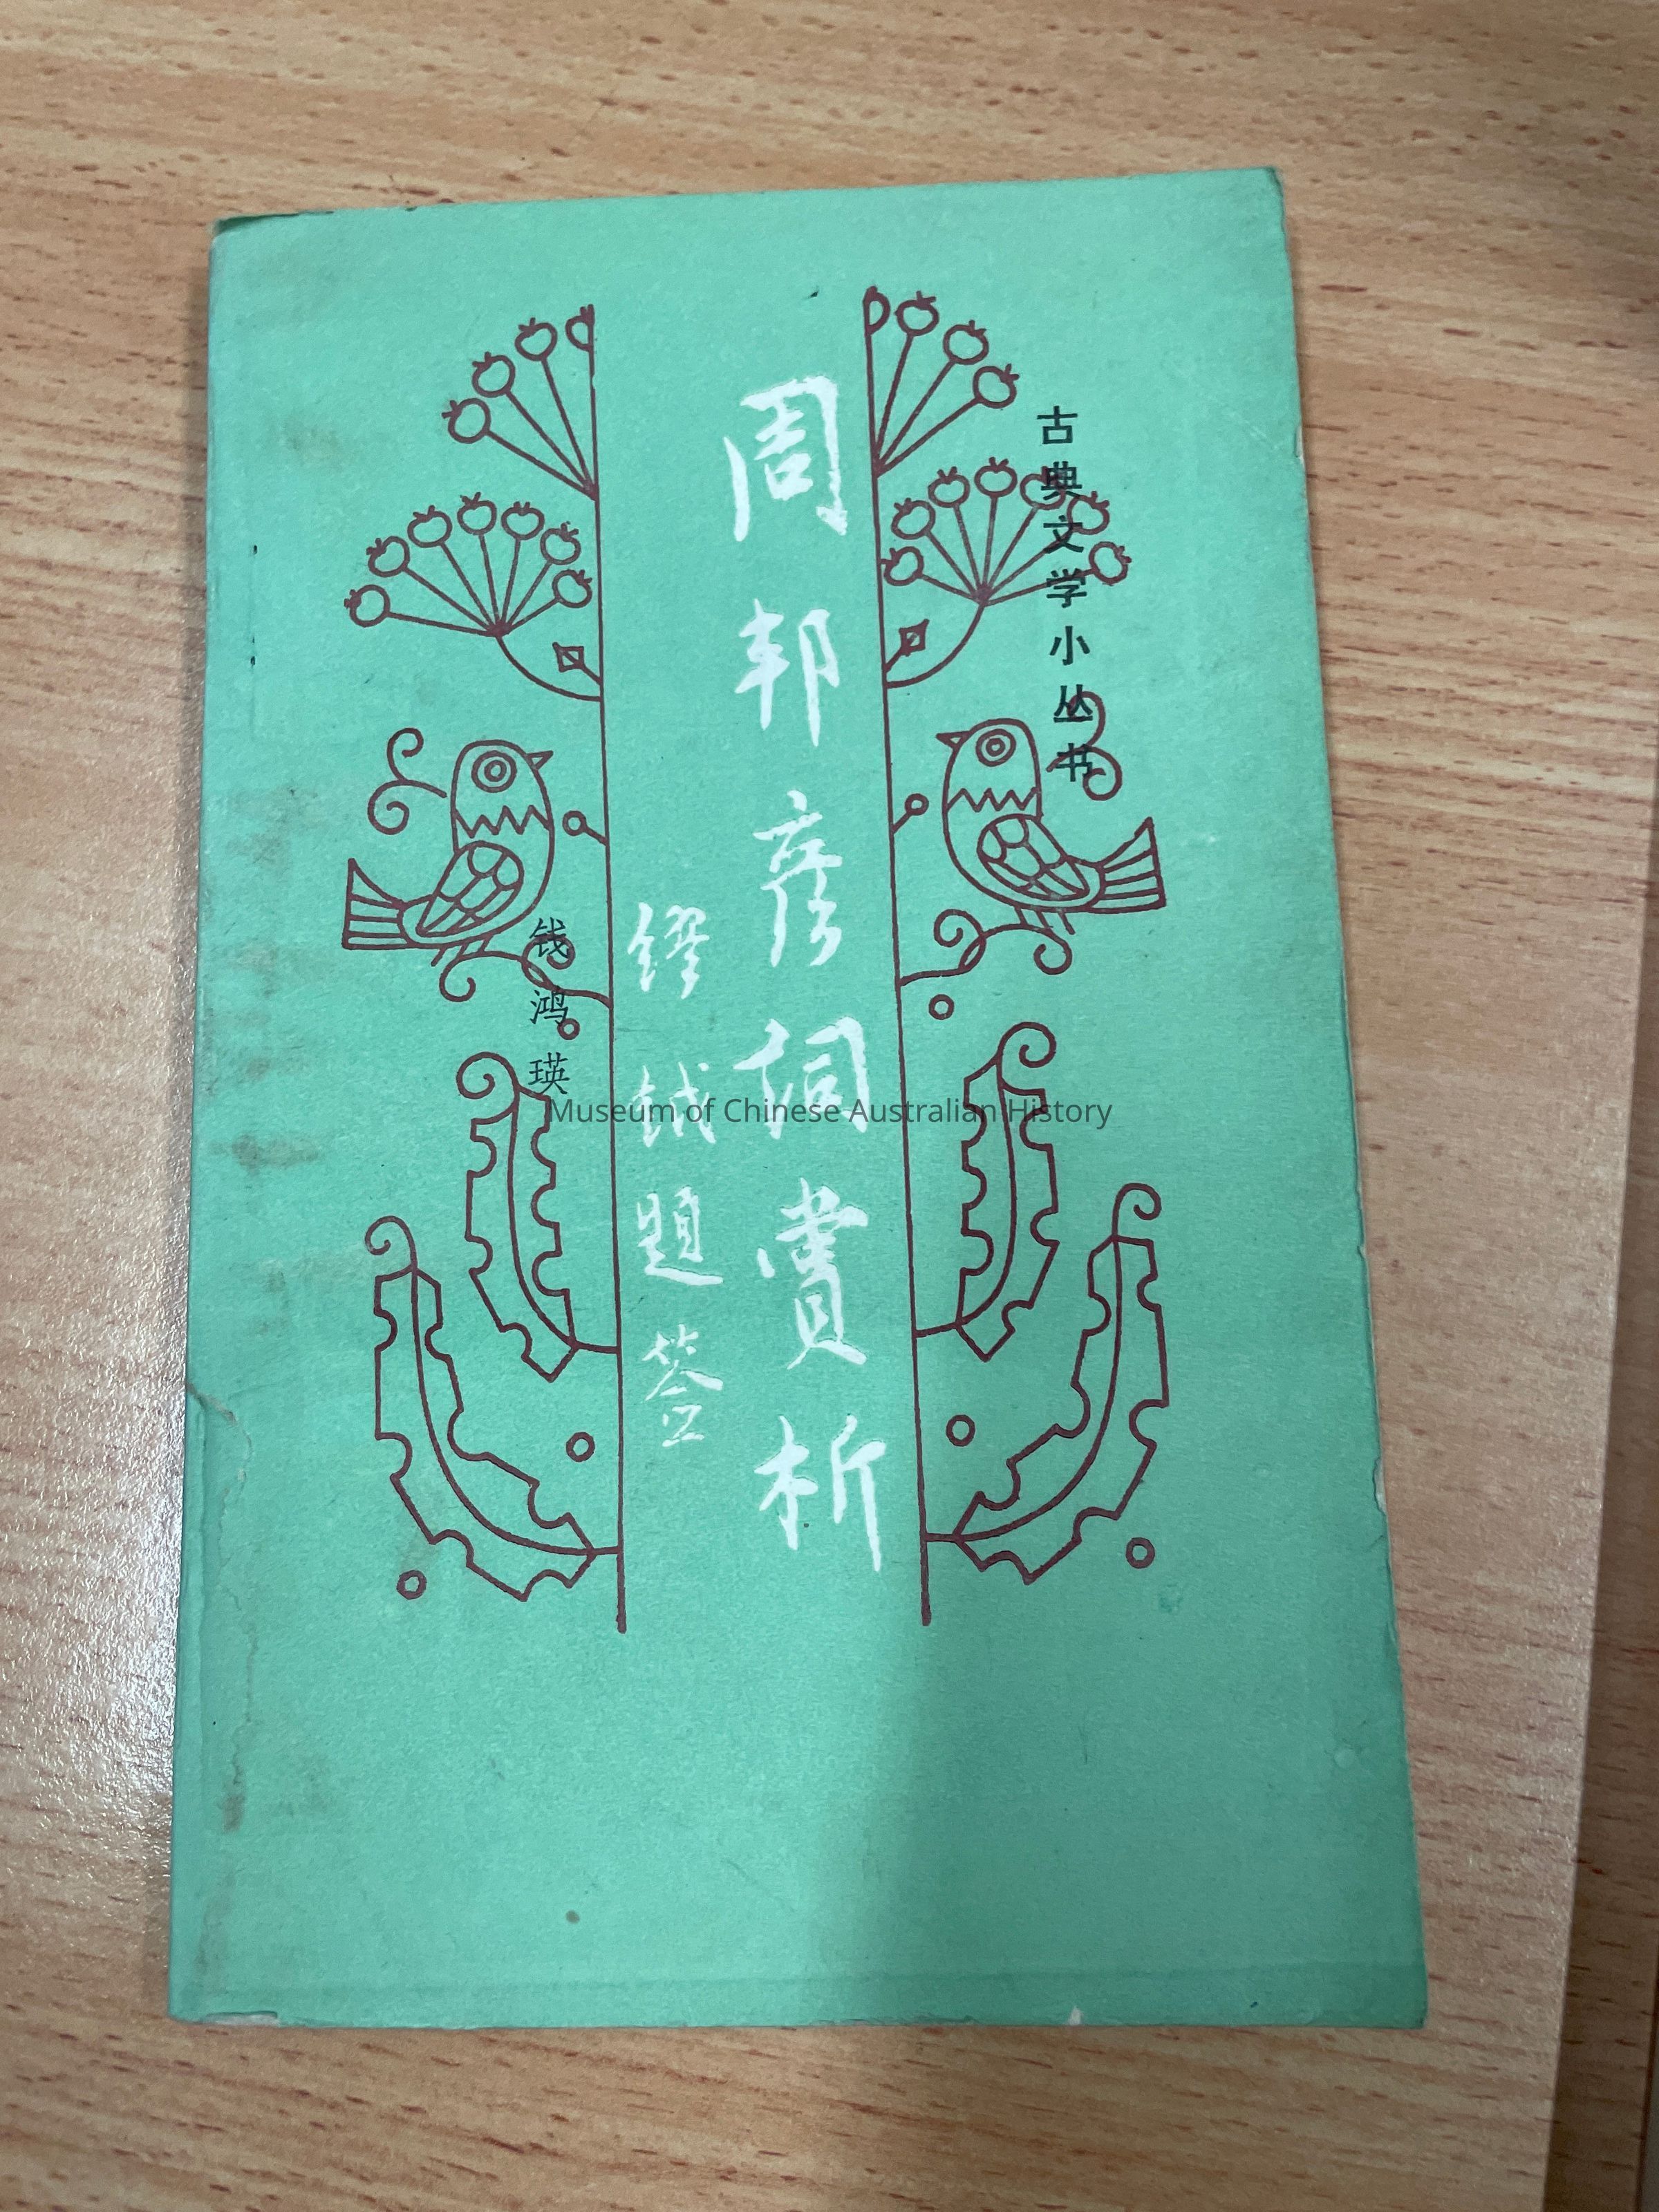 古典文学小丛书
周邦彦词赏析
缪钺题签
钱鸿瑛
Museum of Chinese Australian History